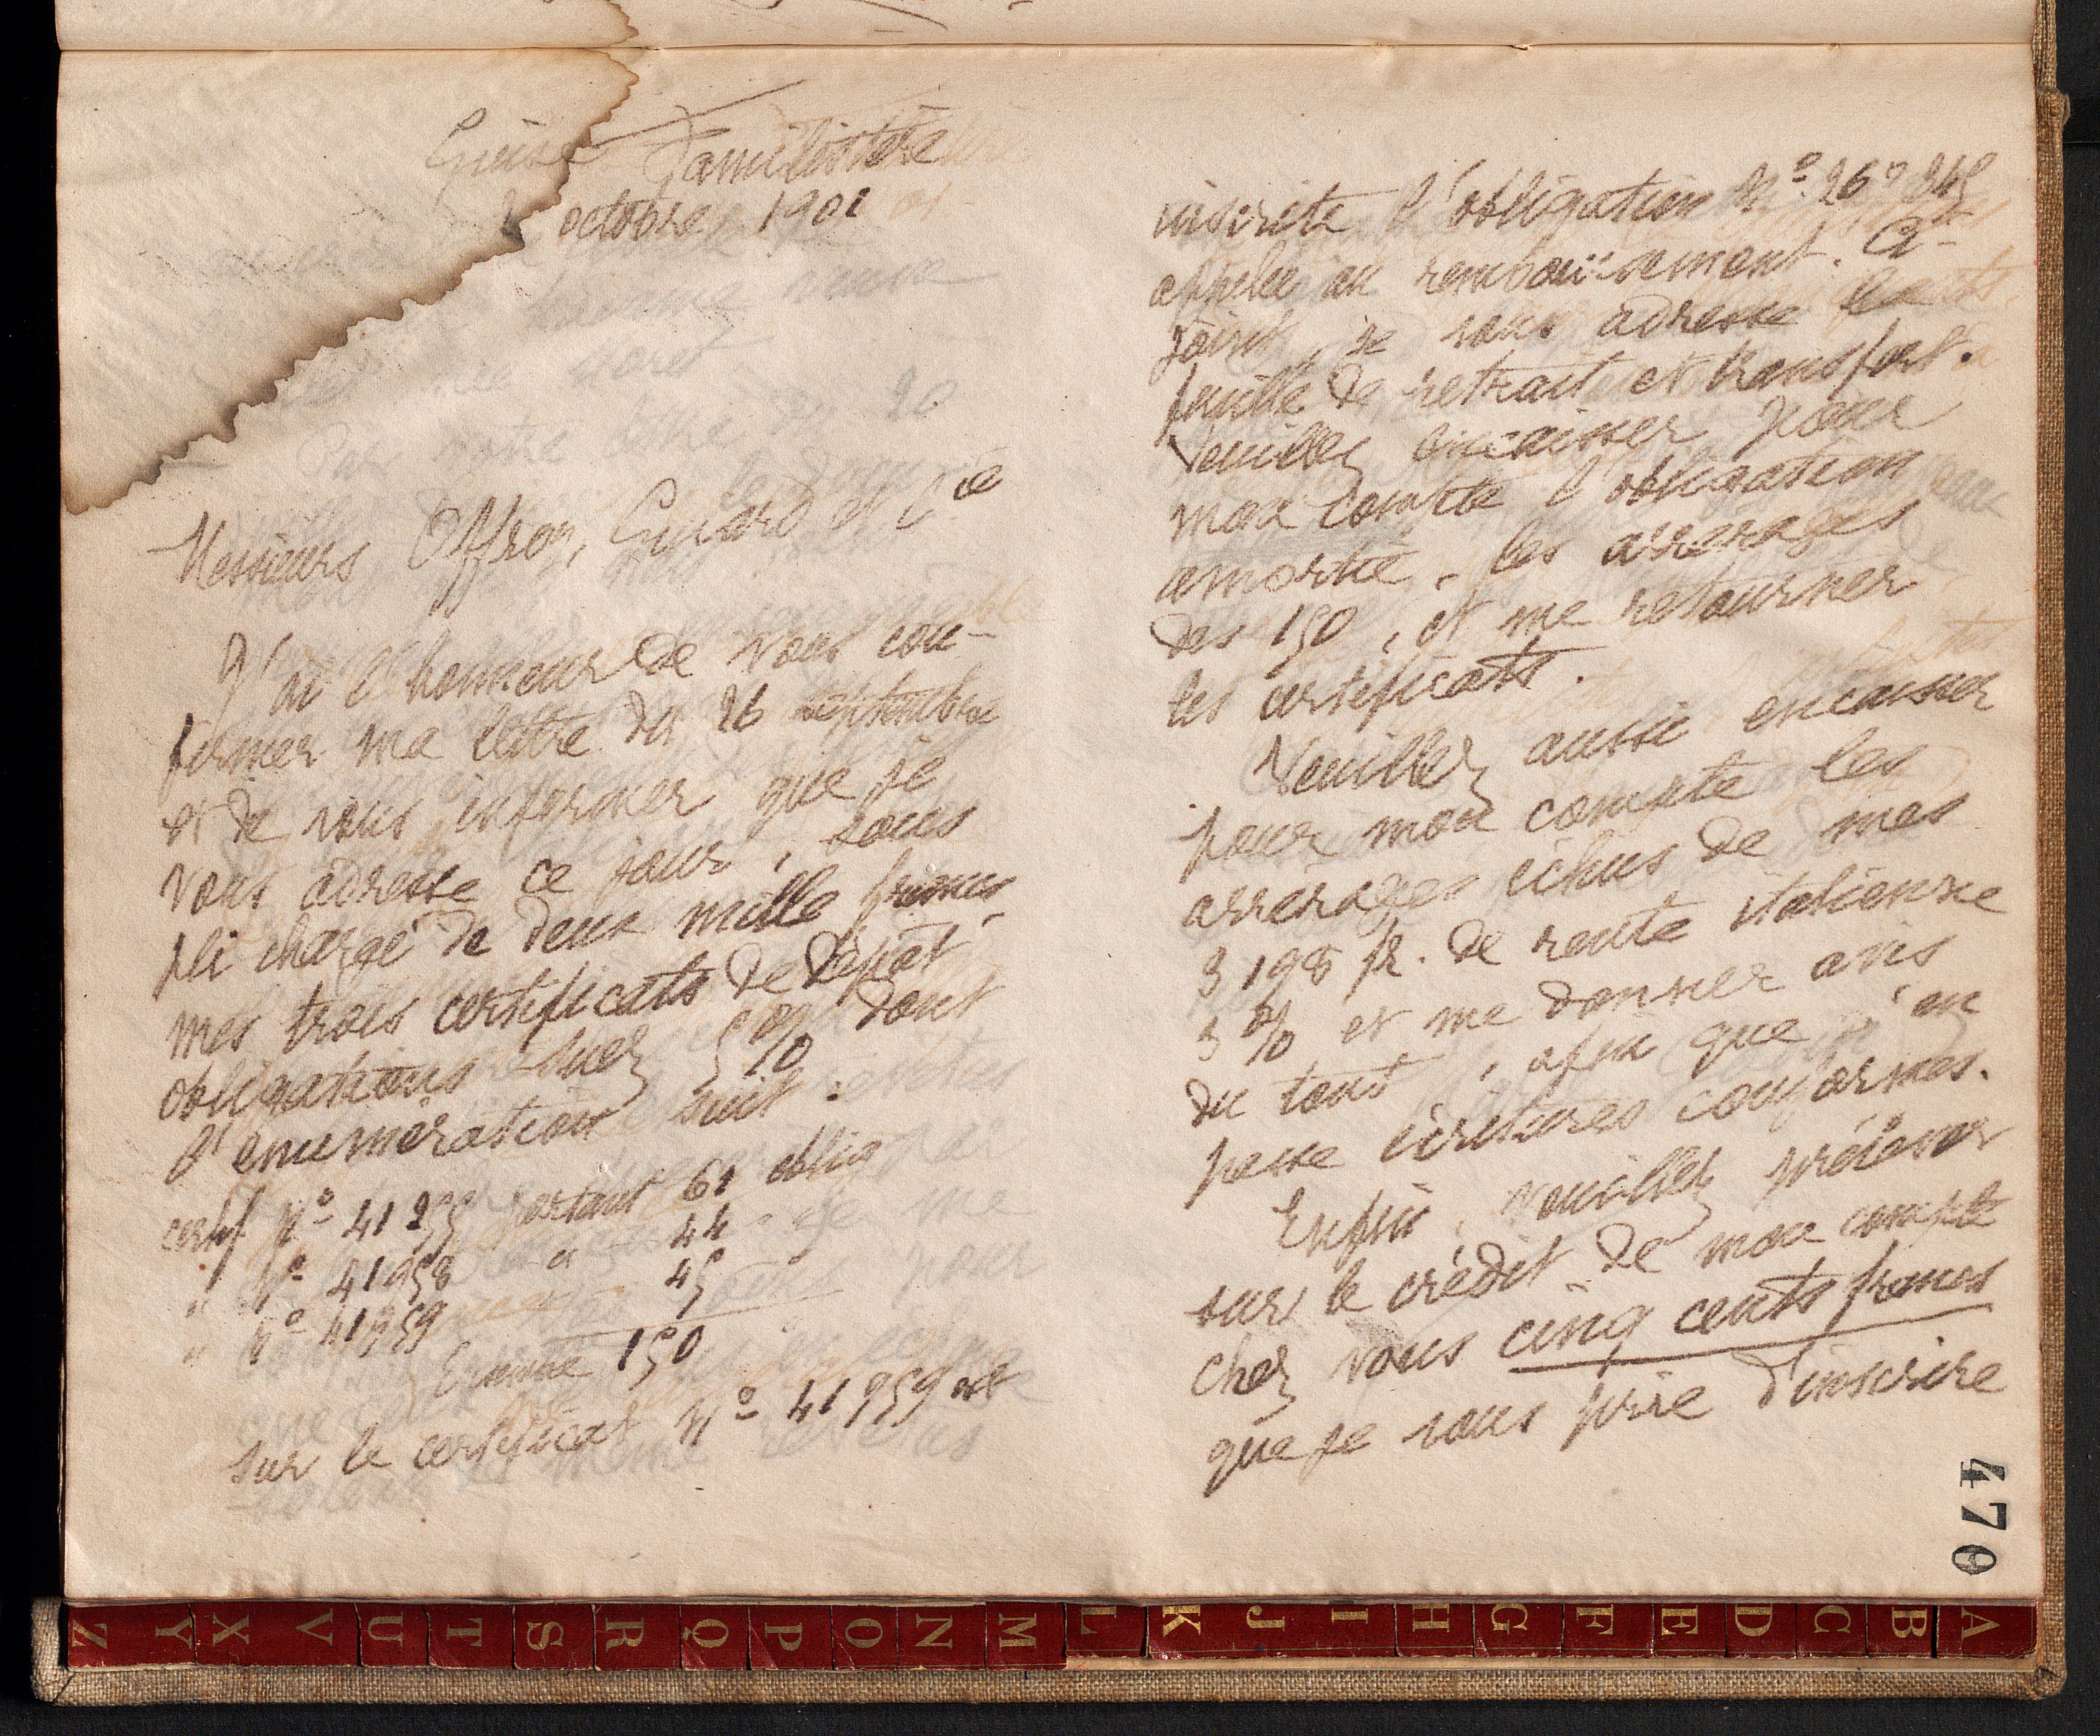 Guise Familistère
octobre 1901
Messieurs Offroy, Guiard et Cie
J'ai l'honneur de vous con-
firmer ma lettre du 26 septembre
et de vous informer que je
vous adresse ce jour, sous
pli chargé de deux mille francs,
mes trois certificats de dépôt
obligations Suez 5 % dont
l'énumération suit :
certif No 41955 portant 61 oblig
" No 41958 " 44
" No 41959 45
Ensemble 150
Sur le certificat No 41959 est
inscrite l'obligation No 260 245
appelée au remboursement. Ci-
joint, je vous adresse la
feuille de retrait et transfert.
Veuillez encaisser pour
mon compte l'obligation
amortie, les arrérages
des 150, et me retourner
les certificats.
Veuillez aussi encaisser
pour mon compte les
arrérages échus de mes
3 198 fr. de rente italienne
5 % et me donner avis
du tout, afin que j'en
passe écritures conformes.
Enfin, veuillez prélever
sur le crédit de mon compte
chez vous cinq cents francs
que je vous prie d'inscrire
470
Z Y X V U T S R Q P O N M L K J I H G F E D C B A